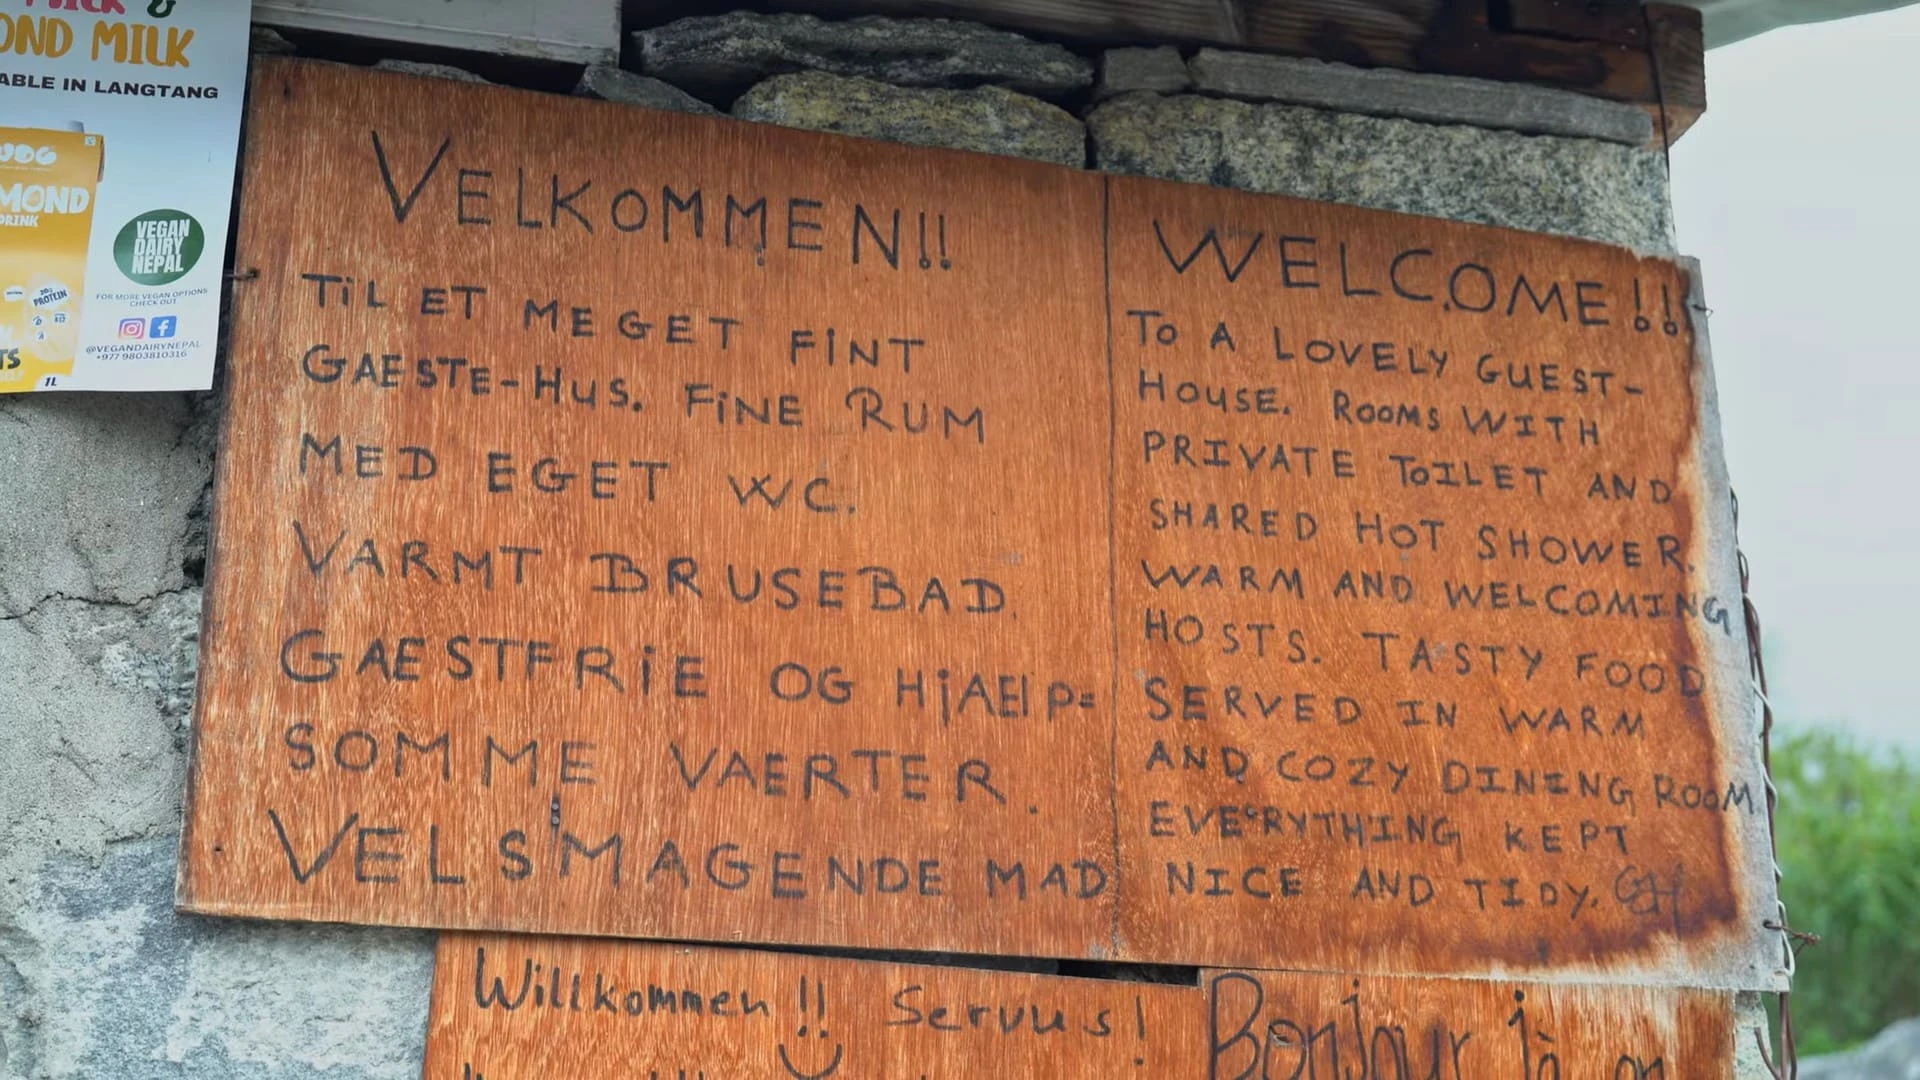 OND MILK
ABLE IN LANGTANG
MOND
DRINK
VEGAN
DAIRY
NEPAL
FOR MORE VEGAN OPTIONS
CHECK OUT
@VEGANDAIRYNEPAL
+977 9803810316
PROTEIN
1L
VELKOMMEN!!
TIL ET MEGET FINT
GAESTE-HUS. FINE RUM
MED EGET WC.
VARMT BRUSEBAD.
GAESTFRIE OG HJAELP=
SOMME VAERTER.
VELSMAGENDE MAD
WELCOME!!
TO A LOVELY GUEST-
HOUSE. ROOMS WITH
PRIVATE TOILET AND
SHARED HOT SHOWER.
WARM AND WELCOMING
HOSTS. TASTY FOOD
SERVED IN WARM
AND COZY DINING ROOM
EVERYTHING KEPT
NICE AND TIDY. GH
Willkommen!! Servus!
Bonjour à